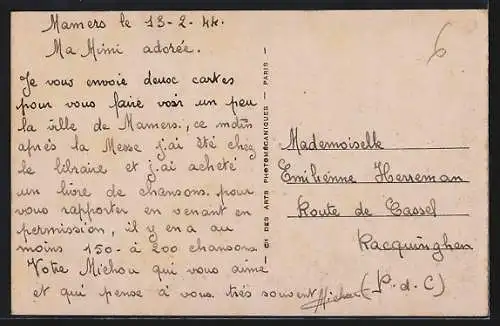 Mamers le 13-2-44.
Ma Mimi adorée.
Je vous envoie deux cartes
pour vous faire voir un peu
la ville de Mamers, ce matin
après la Messe j'ai été chez
le libraire et j'ai acheté
un livre de chansons pour
vous rapporter en venant en
permission, il y en a au
moins 150 à 200 chansons
Votre Michou qui vous aime
et qui pense à vous très souvent
Michou
6
Cie DES ARTS PHOTOMÉCANIQUES — PARIS
Mademoiselle
Emilienne Herreman
Route de Cassel
Racquinghen
(P-d-C)